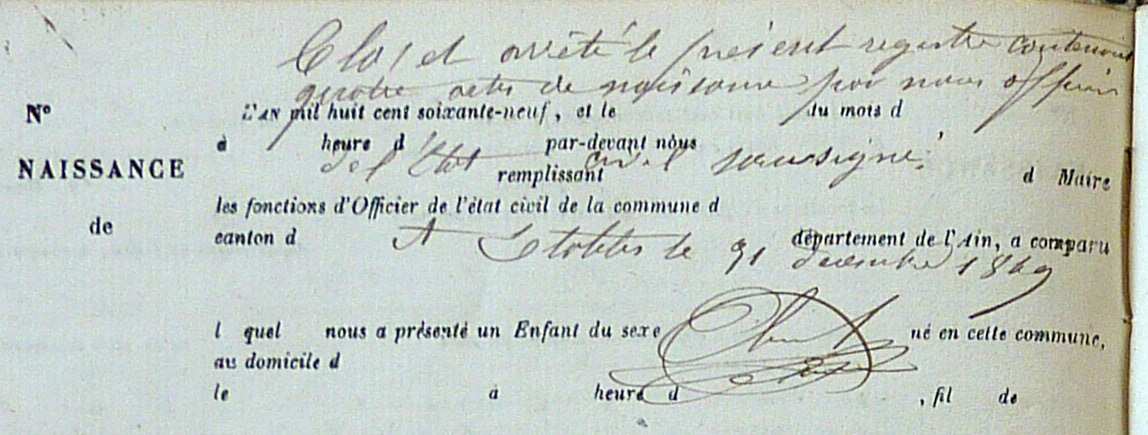 Clos et arrêté le présent registre contenant
quatre actes de naissance par nous officier
N°
L'AN mil huit cent soixante-neuf, et le du mois d
à heure d par-devant nous
de l'État civil soussigné.
NAISSANCE
remplissant d Maire
les fonctions d'Officier de l'état civil de la commune d
de
canton d département de l'Ain, a comparu
A le 31 décembre 1869
l quel nous a présenté un Enfant du sexe né en cette commune,
au domicile d
le à heure d , fil de